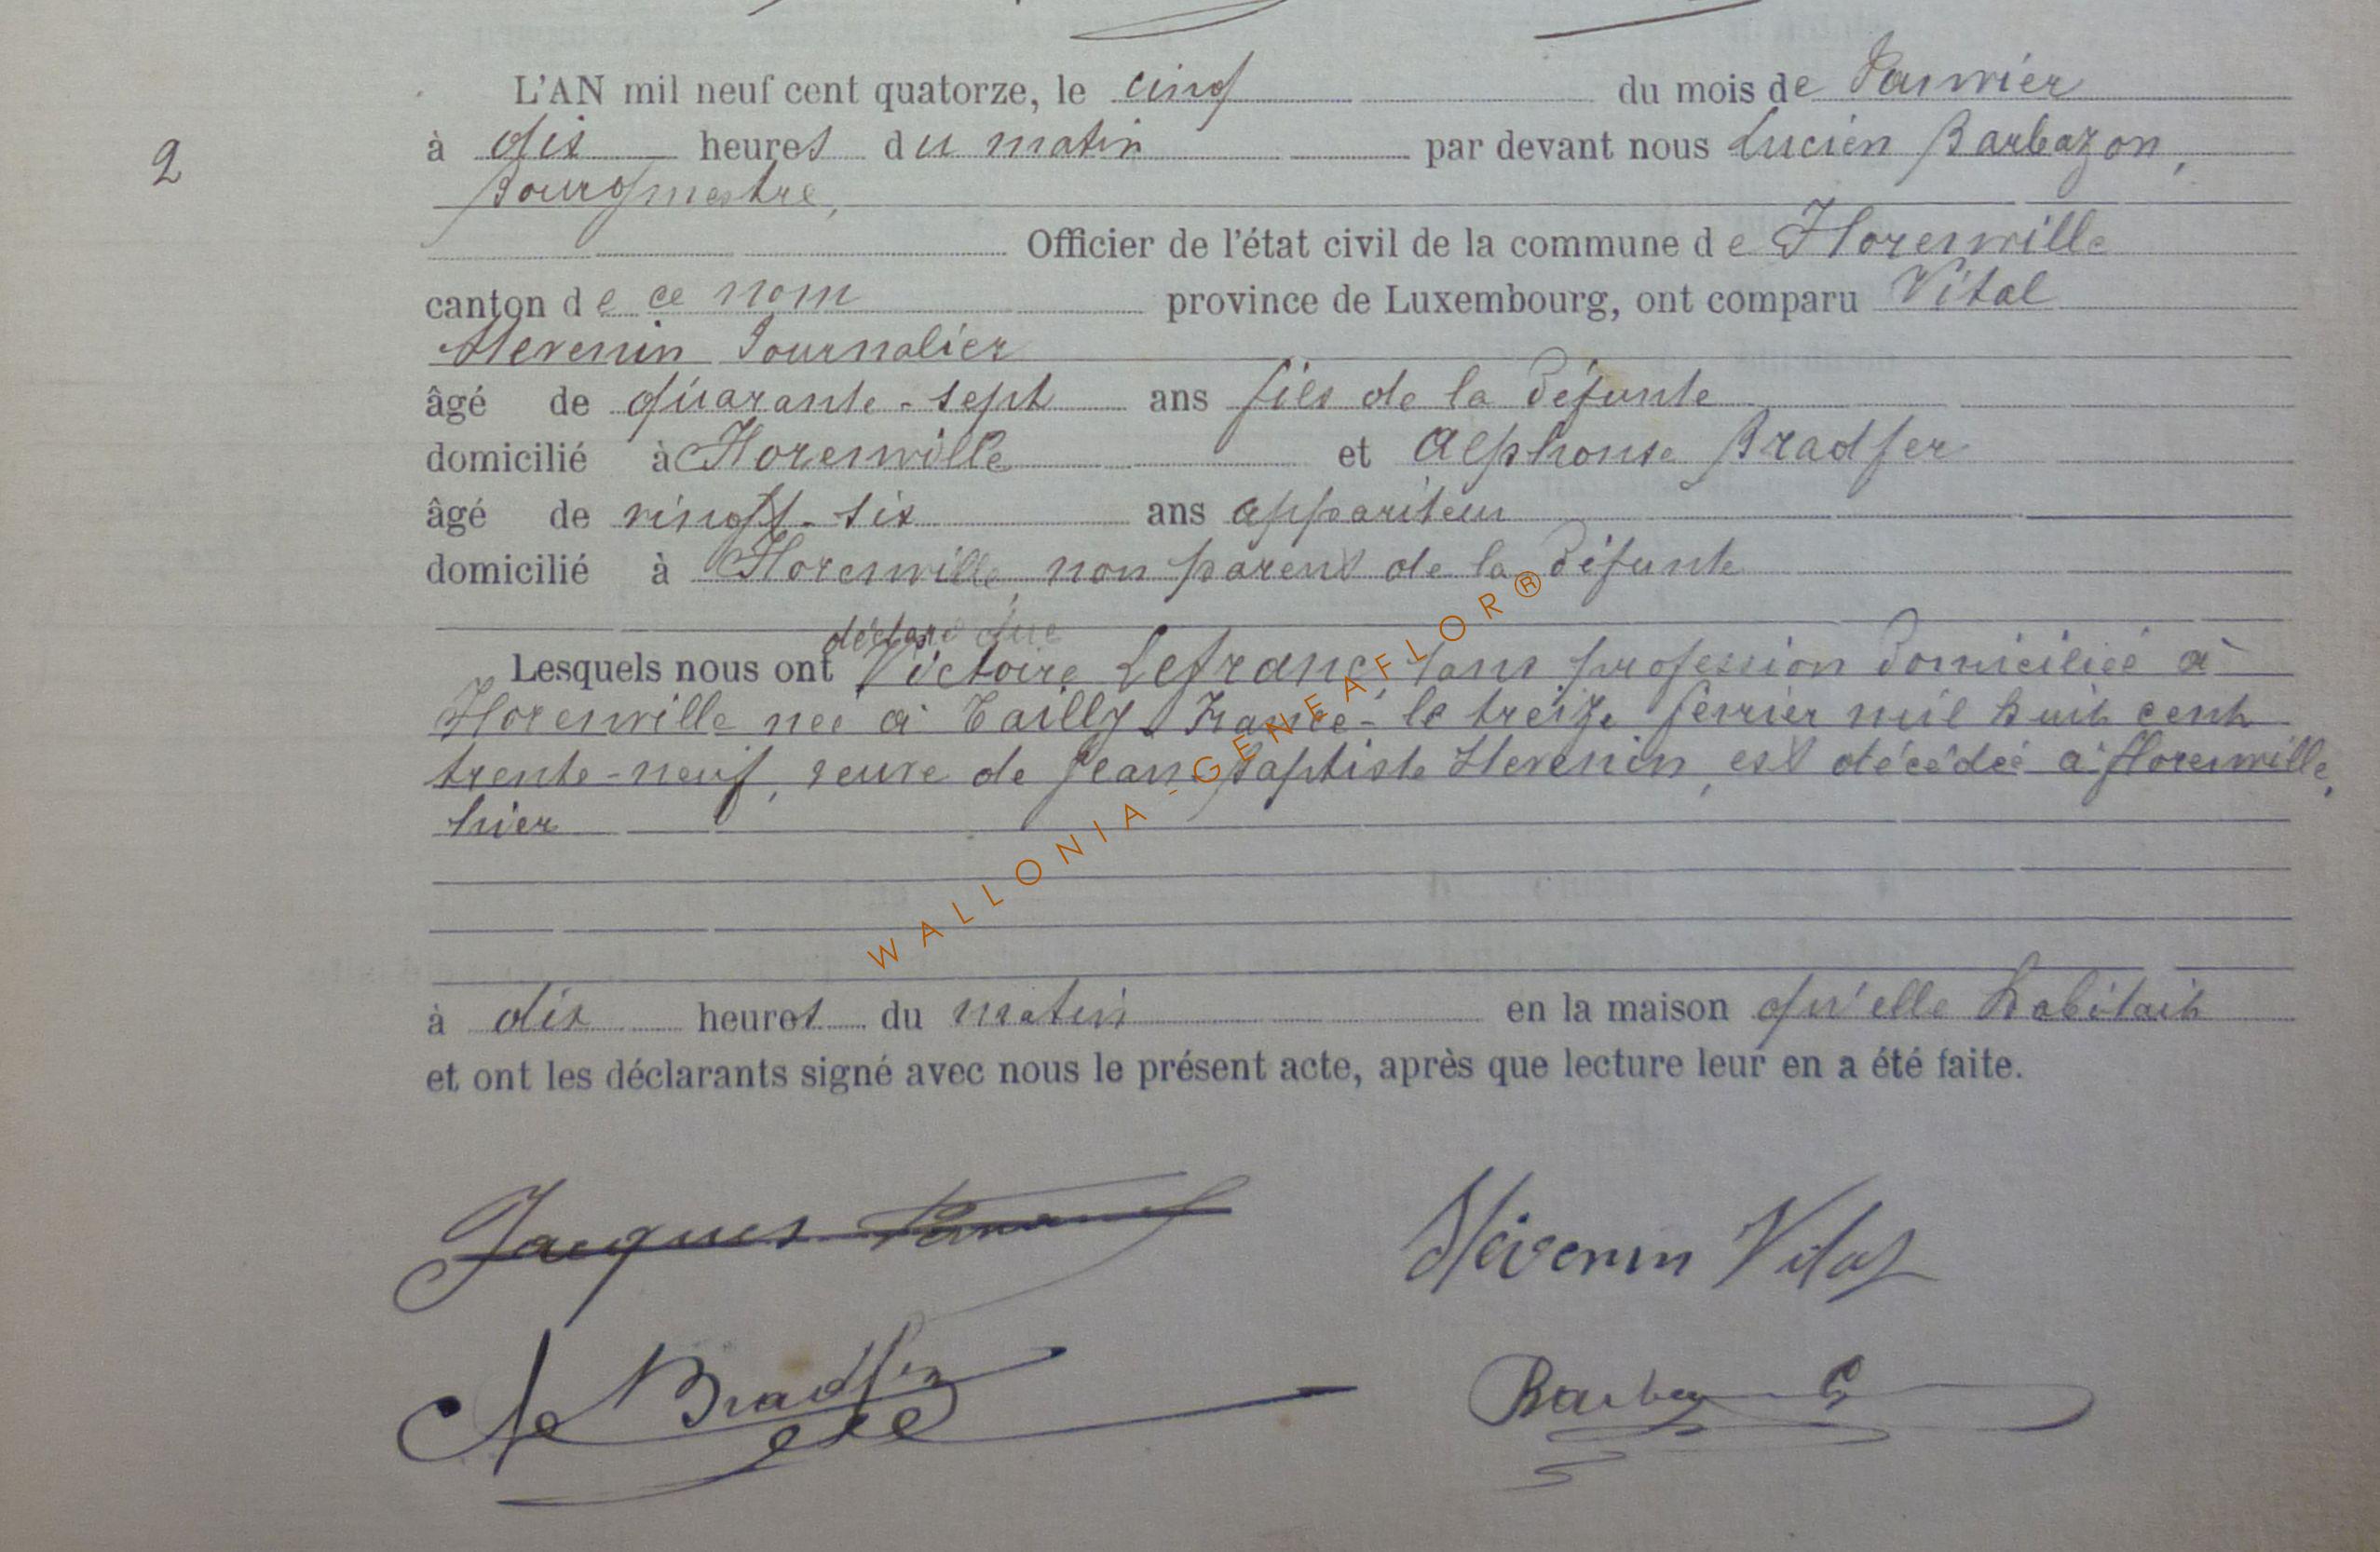 L'AN mil neuf cent quatorze, le cinq du mois de Janvier
2
à dix heures du matin par devant nous Lucien Barbazon,
Bourgmestre,
Officier de l'état civil de la commune de Florenville
canton de ce nom province de Luxembourg, ont comparu Vital
Hevenin Journalier
âgé de quarante-sept ans fils de la défunte
domicilié à Florenville et Alphonse Bradfer
âgé de vingt-six ans appariteur
domicilié à Florenville, non parent de la défunte
déclaré que
Lesquels nous ont Victoire Lefranc, sans profession domiciliée à
Florenville née à Tailly France - le treize février mil huit cent
trente-neuf, veuve de Jean Baptiste Hevenin, est décédée à Florenville,
hier
à dix heures du matin en la maison qu'elle habitait
et ont les déclarants signé avec nous le présent acte, après que lecture leur en a été faite.
Jacques
Hévenin Vital
Ae Bradfer
WALLONIA-GENEAFLOR®